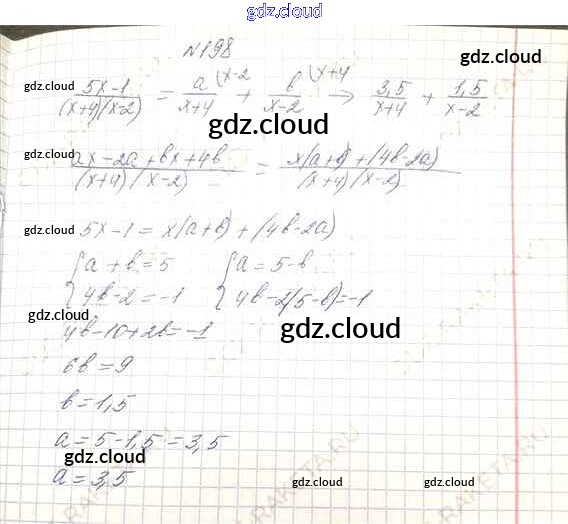 gdz.cloud
№198
gdz.cloud
gdz.cloud (5x-1)/((x+4)(x-2)) = a/(x+4) (x-2 + b/(x-2) (x+4 → 3,5/(x+4) + 1,5/(x-2)
gdz.cloud
gdz.cloud (ax-2a+bx+4b)/((x+4)(x-2)) = (x(a+b)+(4b-2a))/((x+4)(x-2))
gdz.cloud 5x-1 = x(a+b) + (4b-2a)
{a+b=5 {a=5-b
{4b-2=-1 {4b-2(5-b)=-1
gdz.cloud
4b-10+2b=-1 gdz.cloud
6b=9
b=1,5
a=5-1,5=3,5
gdz.cloud
a=3,5 gdz.cloud gdz.cloud